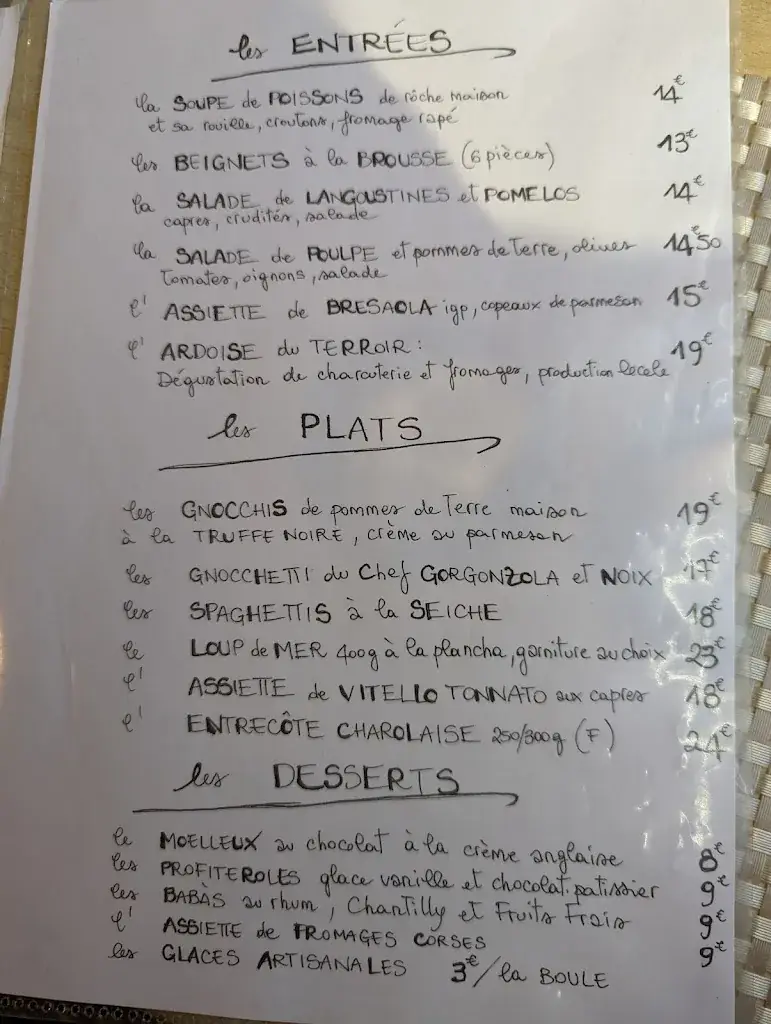 les ENTRÉES
la SOUPE de POISSONS de rôche maison 14€
et sa rouille, croutons, fromage rapé
les BEIGNETS à la BROUSSE (6 pièces) 13€
la SALADE de LANGOUSTINES et POMELOS 14€
capres, crudités, salade
la SALADE de POULPE et pommes de Terre, olives 14€50
Tomates, oignons, salade
l' ASSIETTE de BRESAOLA igp, copeaux de parmesan 15€
l' ARDOISE du TERROIR : 19€
Dégustation de charcuterie et fromages, production locale
les PLATS
les GNOCCHIS de pommes de Terre maison 19€
à la TRUFFE NOIRE, crème au parmesan
les GNOCCHETTI du Chef GORGONZOLA et NOIX 17€
les SPAGHETTIS à la SEICHE 18€
le LOUP de MER 400g à la plancha, garniture au choix 23€
l' ASSIETTE de VITELLO TONNATO aux capres 18€
l' ENTRECÔTE CHAROLAISE 250/300g (F) 24€
les DESSERTS
le MOELLEUX au chocolat à la crème anglaise 8€
les PROFITEROLES glace vanille et chocolat patissier 9€
les BABAS au rhum, Chantilly et Fruits Frais 9€
l' ASSIETTE de FROMAGES CORSES 9€
les GLACES ARTISANALES 3€/la BOULE